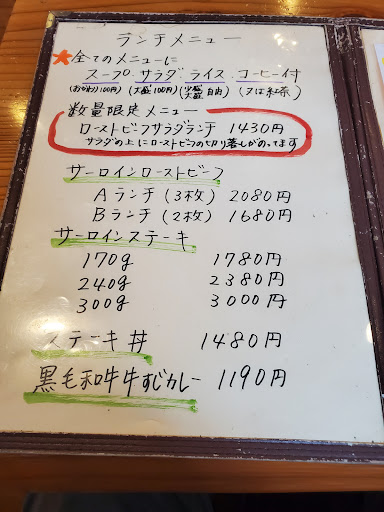 ランチメニュー
★全てのメニューに
スープ・サラダ・ライス・コーヒー付
(おかわり100円)(大盛100円)(少盛 大盛 自由)(又は紅茶)
数量限定メニュー
ローストビーフサラダランチ 1430円
サラダの上にローストビーフの切り落しがのってます
サーロインローストビーフ
Aランチ(3枚) 2080円
Bランチ(2枚) 1680円
サーロインステーキ
170g 1780円
240g 2380円
300g 3000円
ステーキ丼 1480円
黒毛和牛牛すじカレー 1190円